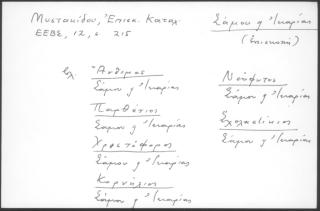 Μυστακίδου, Ἐπισκ. Καταλ.
ΕΕΒΣ, 12, σ. 215
Σάμου ἤ Ἰκαρίας
(Ἐπισκοπή)
Ἄνθιμος
Σάμου ἤ Ἰκαρίας
Παρθένιος
Σάμου ἤ Ἰκαρίας
Χριστόφορος
Σάμου ἤ Ἰκαρίας
Κορνήλιος
Σάμου ἤ Ἰκαρίας
Νεόφυτος
Σάμου ἤ Ἰκαρίας
Σάμου ἤ Ἰκαρίας